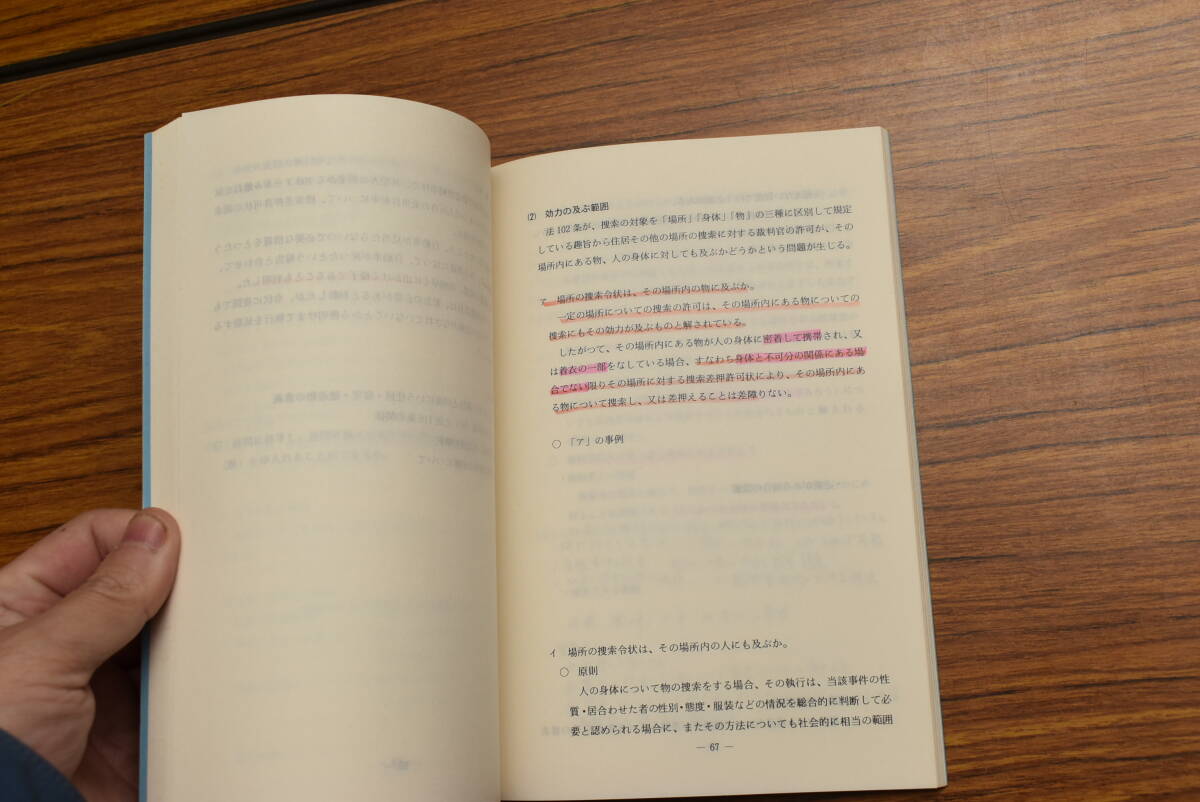 (2) 効力の及ぶ範囲
法102条が、捜索の対象を「場所」「身体」「物」の三種に区別して規定
している趣旨から住居その他の場所の捜索に対する裁判官の許可が、その
場所内にある物、人の身体に対しても及ぶかどうかという問題が生じる。
ア 場所の捜索令状は、その場所内の物に及ぶか。
一定の場所についての捜索の許可は、その場所内にある物についての
捜索にもその効力が及ぶものと解されている。
したがつて、その場所内にある物が人の身体に密着して携帯され、又
は着衣の一部をなしている場合、すなわち身体と不可分の関係にある場
合でない限りその場所に対する捜索差押許可状により、その場所内にあ
る物について捜索し、又は差押えることは差障りない。
○ 「ア」の事例
イ 場所の捜索令状は、その場所内の人にも及ぶか。
○ 原則
人の身体について物の捜索をする場合、その執行は、当該事件の性
質・居合わせた者の性別・態度・服装などの情況を総合的に判断して必
要と認められる場合に、またその方法についても社会的に相当の範囲
— 67 —